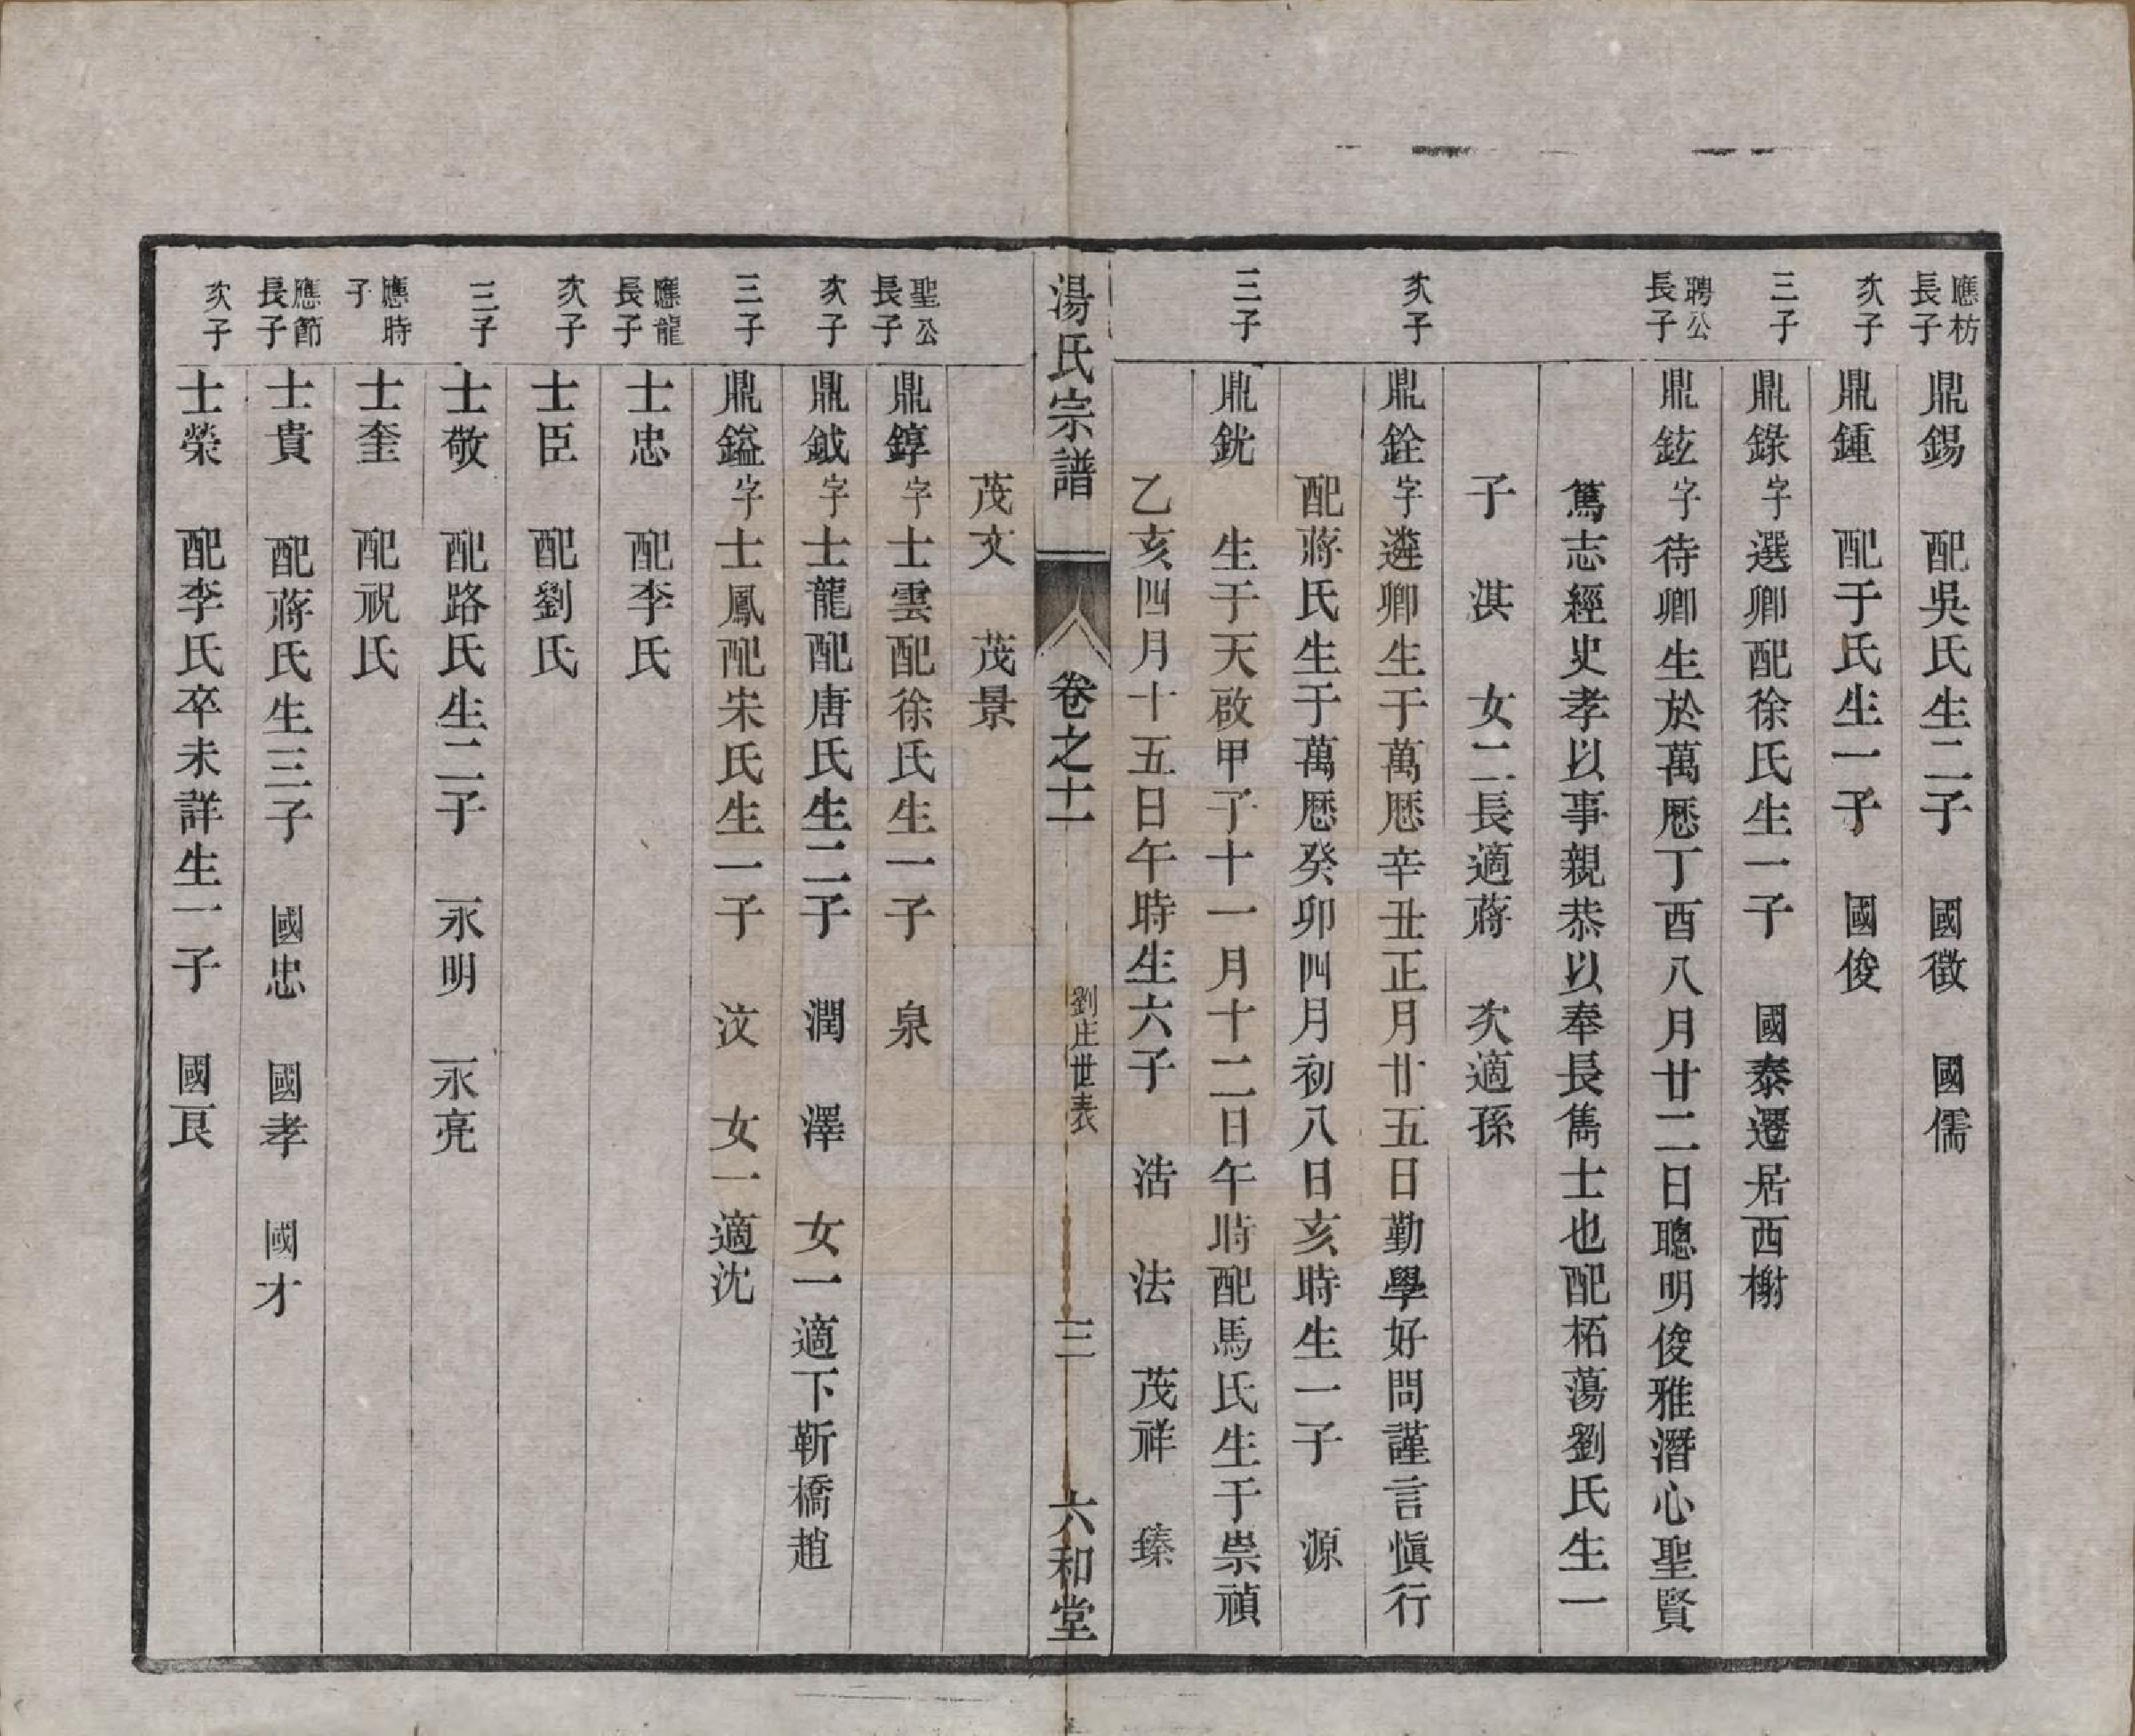 應枋長子　鼎錫　配吳氏生二子　國徵　國儒
次子　鼎鍾　配于氏生一子　國俊
三子　鼎錄字選卿配徐氏生一子　國泰遷居西榭
聘公長子　鼎鉉字待卿生於萬厯丁酉八月廿二日聰明俊雅潛心聖賢
篤志經史孝以事親恭以奉長雋士也配栢蕩劉氏生一
子　淇　女二長適蔣　次適孫
次子　鼎銓字遴卿生于萬厯辛丑正月廿五日勤學好問謹言愼行
配蔣氏生于萬厯癸卯四月初八日亥時生一子　源
三子　鼎銧　生于天啟甲子十一月十二日午時配馬氏生于崇禎
乙亥四月十五日午時生六子　浩　法　茂祥　臻
湯氏宗譜　卷之十一　劉庄世表　三　六和堂
茂文　茂景
聖公長子　鼎錞字士雲配徐氏生一子　泉
次子　鼎鉞字士龍配唐氏生二子　潤　澤　女一適下靳橋趙
三子　鼎鎰字士鳳配宋氏生一子　汶　女一適沈
應龍長子　士忠　配李氏
次子　士臣　配劉氏
三子　士敬　配路氏生二子　永明　永亮
應時子　士奎　配祝氏
應節長子　士貴　配蔣氏生三子　國忠　國孝　國才
次子　士榮　配李氏卒未詳生一子　國良